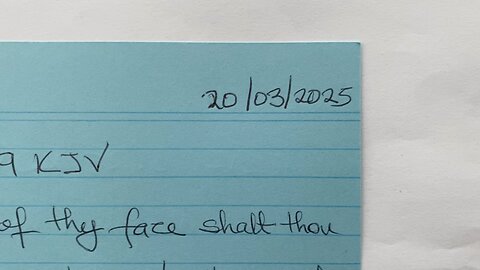 20/03/2025
9 KJV
of thy face shalt thou